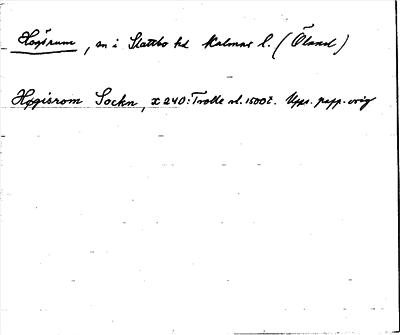 Högsrum, sn i Slättbo hd Kalmar l. (Öland)
Høgisrom Sockn, X 240: Trolle sl. 1500t. Upps. papp. orig